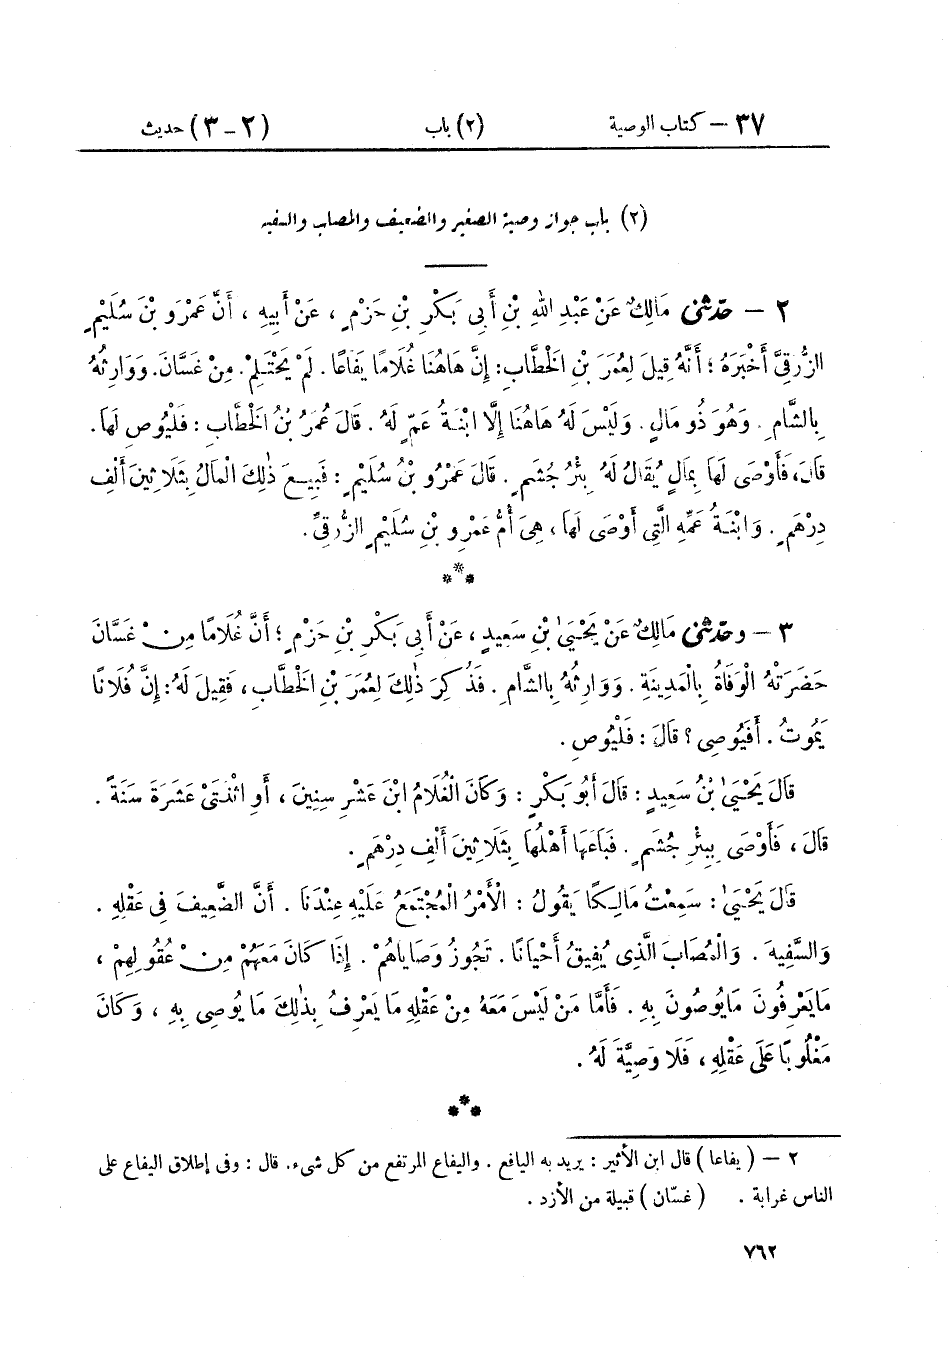 ٣٧ – كتاب الوصية (٢) باب (٢ – ٣) حديث
(٢) باب جواز وصية الصغير والضعيف والمصاب والسفيه
٢ – حَدَّثَنِي مَالِكٌ عَنْ عَبْدِ اللهِ بْنِ أَبِي بَكْرِ بْنِ حَزْمٍ ، عَنْ أَبِيهِ ، أَنَّ عَمْرَو بْنَ سُلَيْمٍ
الزُّرَقِيَّ أَخْبَرَهُ ؛ أَنَّهُ قِيلَ لِعُمَرَ بْنِ الْخَطَّابِ : إِنَّ هَاهُنَا غُلَامًا يَفَاعًا . لَمْ يَحْتَلِمْ . مِنْ غَسَّانَ . وَوَارِثُهُ
بِالشَّامِ . وَهُوَ ذُو مَالٍ . وَلَيْسَ لَهُ هَاهُنَا إِلَّا ابْنَةُ عَمٍّ لَهُ . قَالَ عُمَرُ بْنُ الْخَطَّابِ : فَلْيُوصِ لَهَا .
قَالَ ، فَأَوْصَى لَهَا بِمَالٍ يُقَالُ لَهُ بِئْرُ جُشَمٍ . قَالَ عَمْرُو بْنُ سُلَيْمٍ : فَبِيعَ ذٰلِكَ الْمَالُ بِثَلَاثِينَ أَلْفَ
دِرْهَمٍ . وَابْنَةُ عَمِّهِ الَّتِي أَوْصَى لَهَا ، هِيَ أُمُّ عَمْرِو بْنِ سُلَيْمٍ الزُّرَقِيِّ .
***
٣ – وحَدَّثَنِي مَالِكٌ عَنْ يَحْيَىٰ بْنِ سَعِيدٍ ، عَنْ أَبِي بَكْرِ بْنِ حَزْمٍ ؛ أَنَّ غُلَامًا مِنْ غَسَّانَ
حَضَرَتْهُ الْوَفَاةُ بِالْمَدِينَةِ . وَوَارِثُهُ بِالشَّامِ . فَذُكِرَ ذٰلِكَ لِعُمَرَ بْنِ الْخَطَّابِ ، فَقِيلَ لَهُ : إِنَّ فُلَانًا
يَمُوتُ . أَفَيُوصِي ؟ قَالَ : فَلْيُوصِ .
قَالَ يَحْيَىٰ بْنُ سَعِيدٍ : قَالَ أَبُو بَكْرٍ : وَكَانَ الْغُلَامُ ابْنَ عَشْرِ سِنِينَ ، أَوِ اثْنَتَيْ عَشَرَةَ سَنَةً .
قَالَ ، فَأَوْصَى بِبِئْرِ جُشَمٍ . فَبَاعَهَا أَهْلُهَا بِثَلَاثِينَ أَلْفِ دِرْهَمٍ .
قَالَ يَحْيَىٰ : سَمِعْتُ مَالِكًا يَقُولُ : الْأَمْرُ الْمُجْتَمَعُ عَلَيْهِ عِنْدَنَا . أَنَّ الضَّعِيفَ فِي عَقْلِهِ .
وَالسَّفِيهَ . وَالْمُصَابَ الَّذِي يُفِيقُ أَحْيَانًا . تَجُوزُ وَصَايَاهُمْ . إِذَا كَانَ مَعَهُمْ مِنْ عُقُولِهِمْ ،
مَا يَعْرِفُونَ مَا يُوصُونَ بِهِ . فَأَمَّا مَنْ لَيْسَ مَعَهُ مِنْ عَقْلِهِ مَا يَعْرِفُ بِذٰلِكَ مَا يُوصِي بِهِ ، وَكَانَ
مَغْلُوبًا عَلَى عَقْلِهِ ، فَلَا وَصِيَّةَ لَهُ .
***
٢ – ( يفاعا ) قال ابن الأثير : يريد به اليافع . واليفاع المرتفع من كل شيء . قال : وفى إطلاق اليفاع على
الناس غرابة . ( غسّان ) قبيلة من الأزد .
٧٦٢